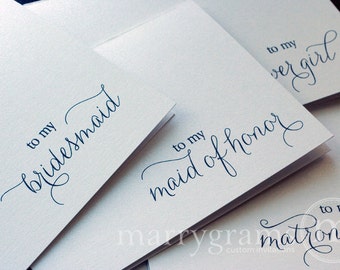 to my
bridesmaid
to my
maid of honor
girl
to my
matron
marrygrams